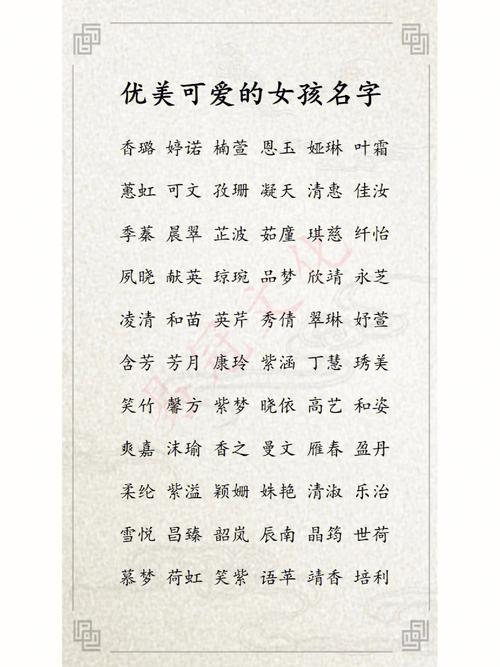 优美可爱的女孩名字
香璐 婷诺 楠萱 恩玉 娅琳 叶霜
蕙虹 可文 孜珊 凝天 清惠 佳汝
季蓁 晨翠 芷波 茹廑 琪慈 纤怡
夙晓 献英 琼琬 品梦 欣靖 永芝
凌清 和苗 英芹 秀倩 翠琳 妤萱
含芳 芳月 康玲 紫涵 丁慧 琇美
笑竹 馨方 紫梦 晓依 高艺 和姿
爽嘉 沫瑜 香之 曼文 雁春 盈丹
柔纶 紫溢 颖姗 姝艳 清淑 乐治
雪悦 昌臻 韶岚 辰南 晶筠 世荷
慕梦 荷虹 笑紫 语苹 靖香 培利